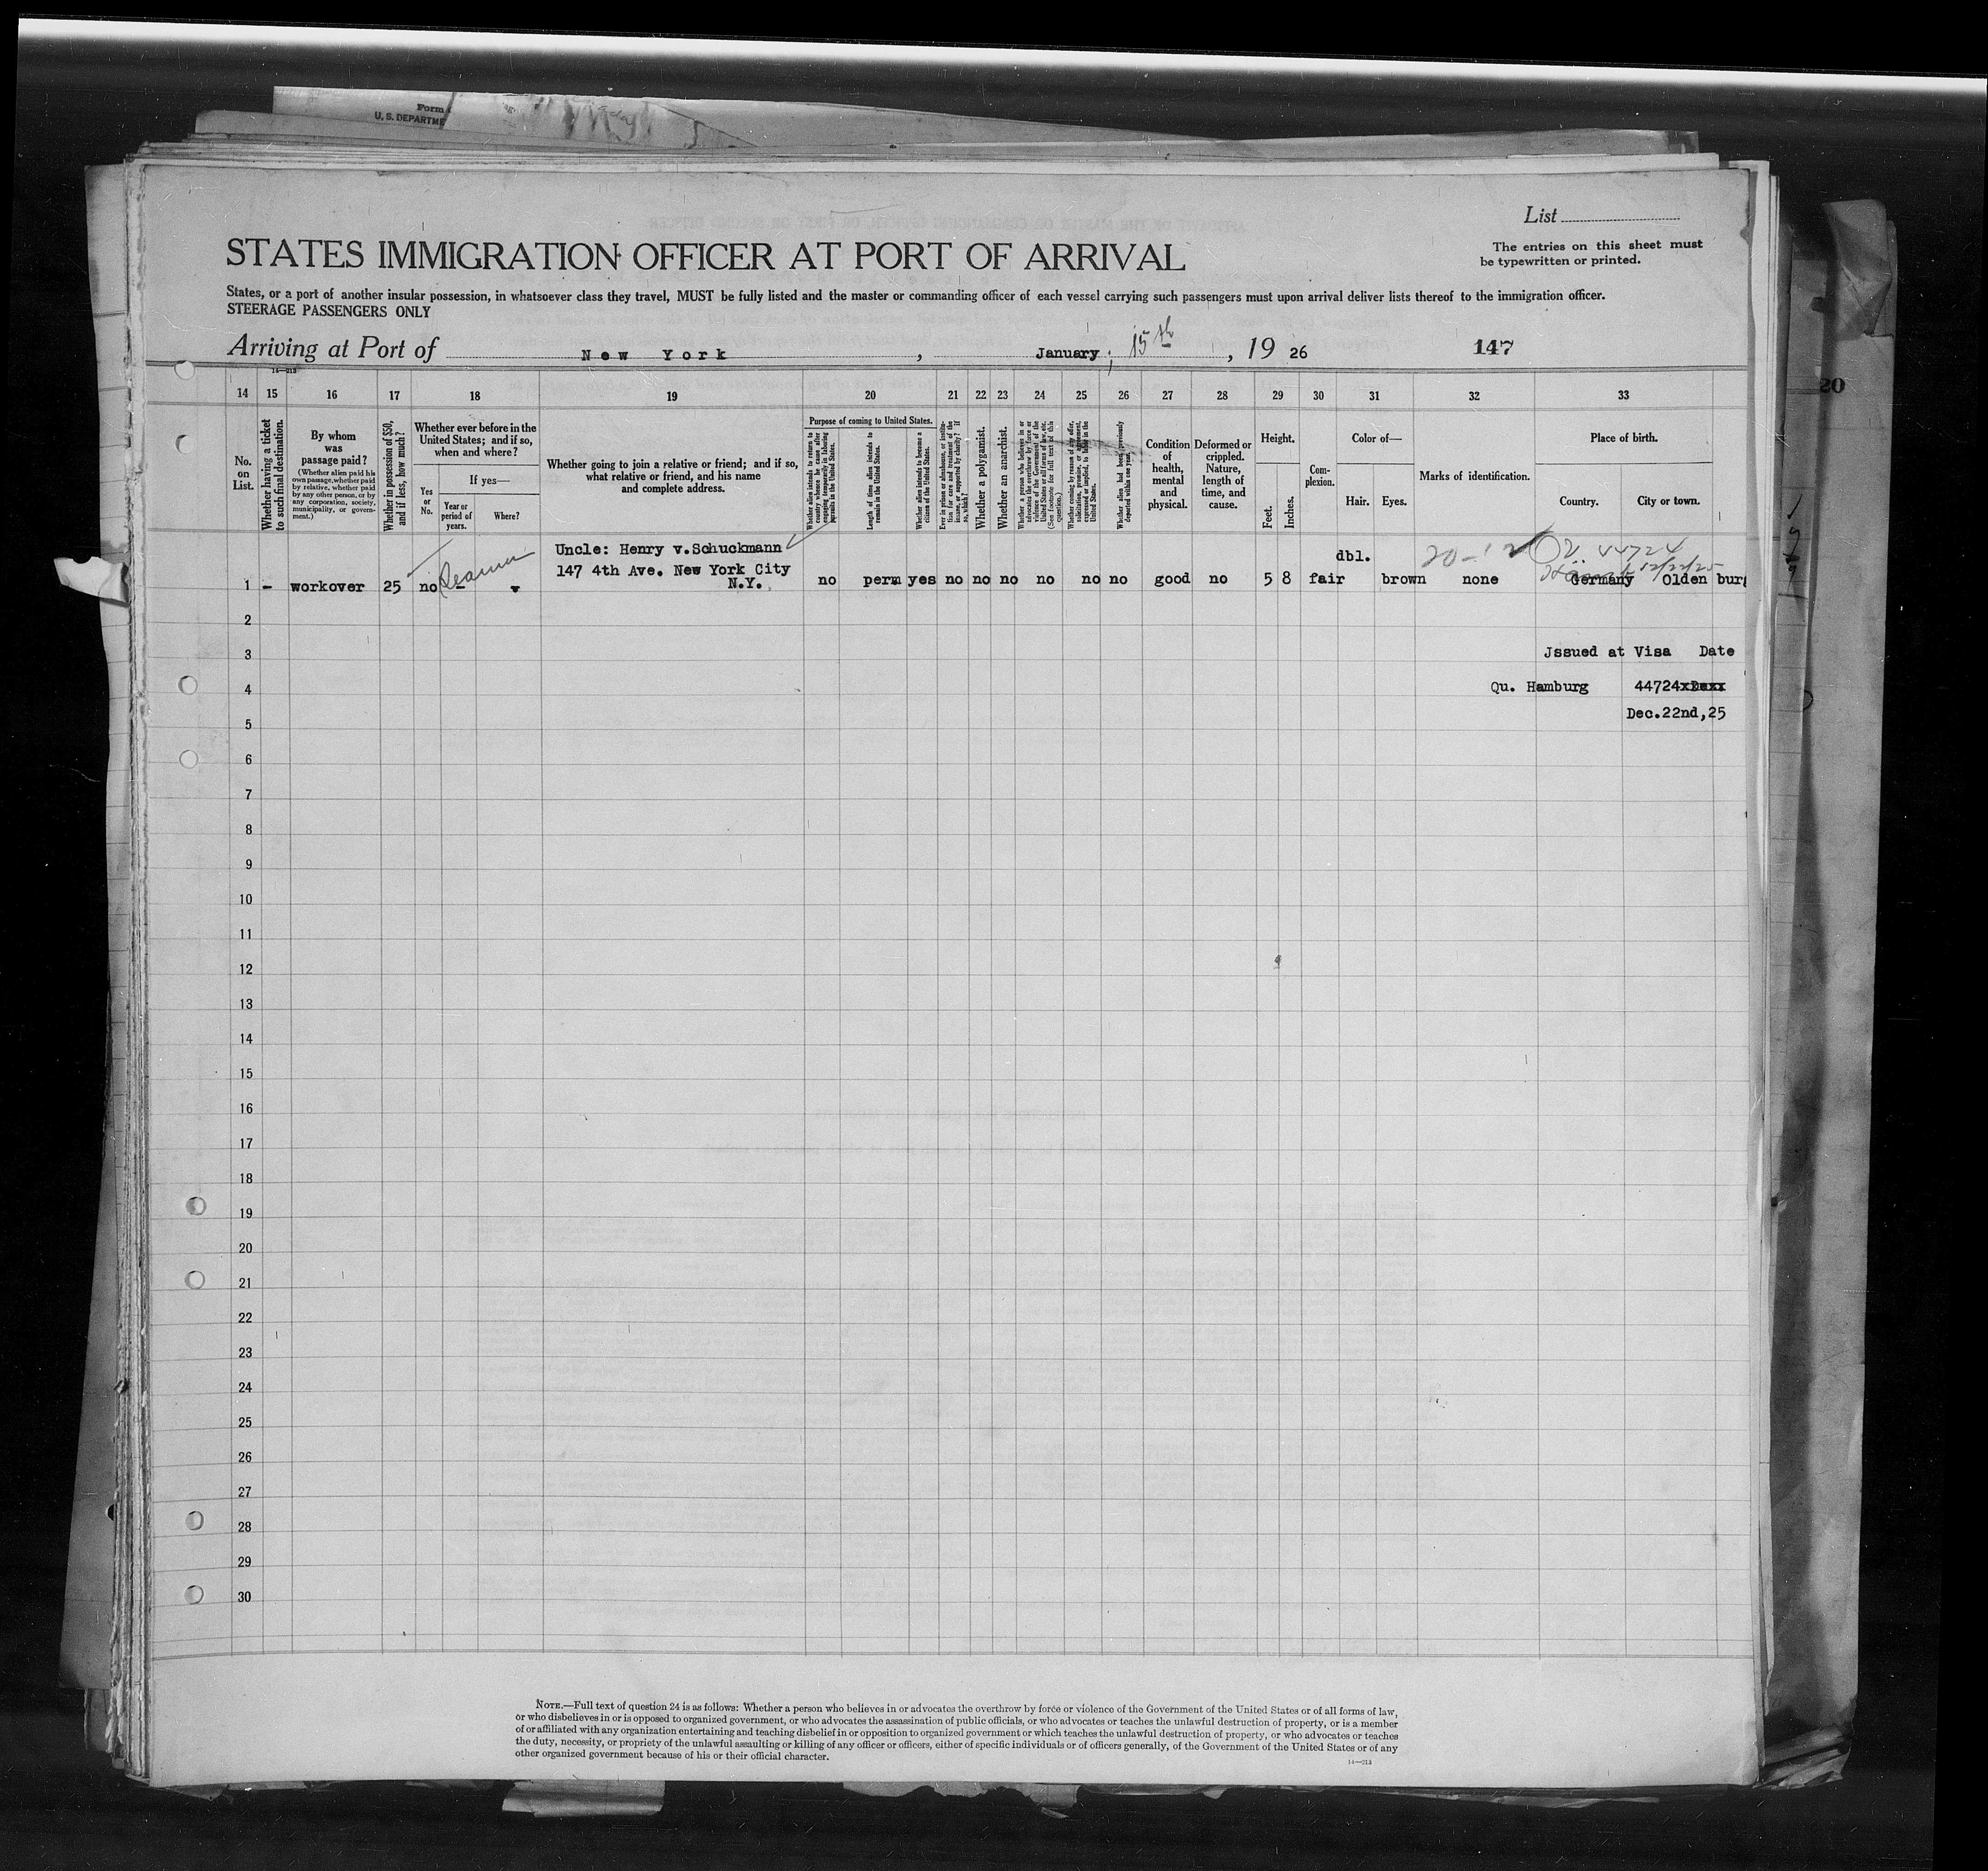 Form
U. S. DEPARTME
List
STATES IMMIGRATION OFFICER AT PORT OF ARRIVAL
The entries on this sheet must
be typewritten or printed.
States, or a port of another insular possession, in whatsoever class they travel, MUST be fully listed and the master or commanding officer of each vessel carrying such passengers must upon arrival deliver lists thereof to the immigration officer.
STEERAGE PASSENGERS ONLY
Arriving at Port of New York, January, 15th, 19 26 147
20
14—213
14 15 16 17 18 19 20 21 22 23 24 25 26 27 28 29 30 31 32 33
No. on List.
Whether having a ticket to such final destination.
By whom was passage paid?
(Whether alien paid his own passage, whether paid by relative, whether paid by any other person, or by any corporation, society, municipality, or government.)
Whether in possession of $50, and if less, how much?
Whether ever before in the United States; and if so, when and where?
Yes or No.
If yes—
Year or period of years.
Where?
Whether going to join a relative or friend; and if so, what relative or friend, and his name and complete address.
Purpose of coming to United States.
Whether alien intends to return to country whence he came after engaging temporarily in laboring pursuits in the United States.
Length of time alien intends to remain in the United States.
Whether alien intends to become a citizen of the United States.
Ever in prison or almshouse, or institution for care and treatment of the insane, or supported by charity? If so, which?
Whether a polygamist.
Whether an anarchist.
Whether a person who believes in or advocates the overthrow by force or violence of the Government of the United States or all forms of law, etc. (See footnote for full text of this question.)
Whether coming by reason of any offer, solicitation, promise, or agreement, expressed or implied, to labor in the United States.
Whether alien had been previously deported within one year.
Condition of health, mental and physical.
Deformed or crippled. Nature, length of time, and cause.
Height.
Feet.
Inches.
Complexion.
Color of—
Hair.
Eyes.
Marks of identification.
Place of birth.
Country.
City or town.
Uncle: Henry v.Schuckmann
147 4th Ave. New York City
N.Y.
dbl.
44724
12/22/25
1 – workover 25 no – no perm yes no no no no no no good no 5 8 fair brown none Germany Olden burg
2
3 Jssued at Visa Date
4 Qu. Hamburg 44724
Dec.22nd,25
5
6
7
8
9
10
11
12
13
14
15
16
17
18
19
20
21
22
23
24
25
26
27
28
29
30
NOTE.—Full text of question 24 is as follows: Whether a person who believes in or advocates the overthrow by force or violence of the Government of the United States or of all forms of law,
or who disbelieves in or is opposed to organized government, or who advocates the assassination of public officials, or who advocates or teaches the unlawful destruction of property, or is a member
of or affiliated with any organization entertaining and teaching disbelief in or opposition to organized government or which teaches the unlawful destruction of property, or who advocates or teaches
the duty, necessity, or propriety of the unlawful assaulting or killing of any officer or officers, either of specific individuals or of officers generally, of the Government of the United States or of any
other organized government because of his or their official character.
14—213